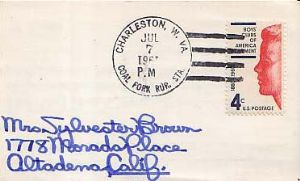 CHARLESTON, W. VA.
JUL
7
P.M
COAL FORK RUR. STA.
BOYS'
CLUBS
OF
AMERICA
MOVEMENT
4c
U.S. POSTAGE
Mrs. Sylvester Brown
1778 Morada Place
Altadena, Calif.